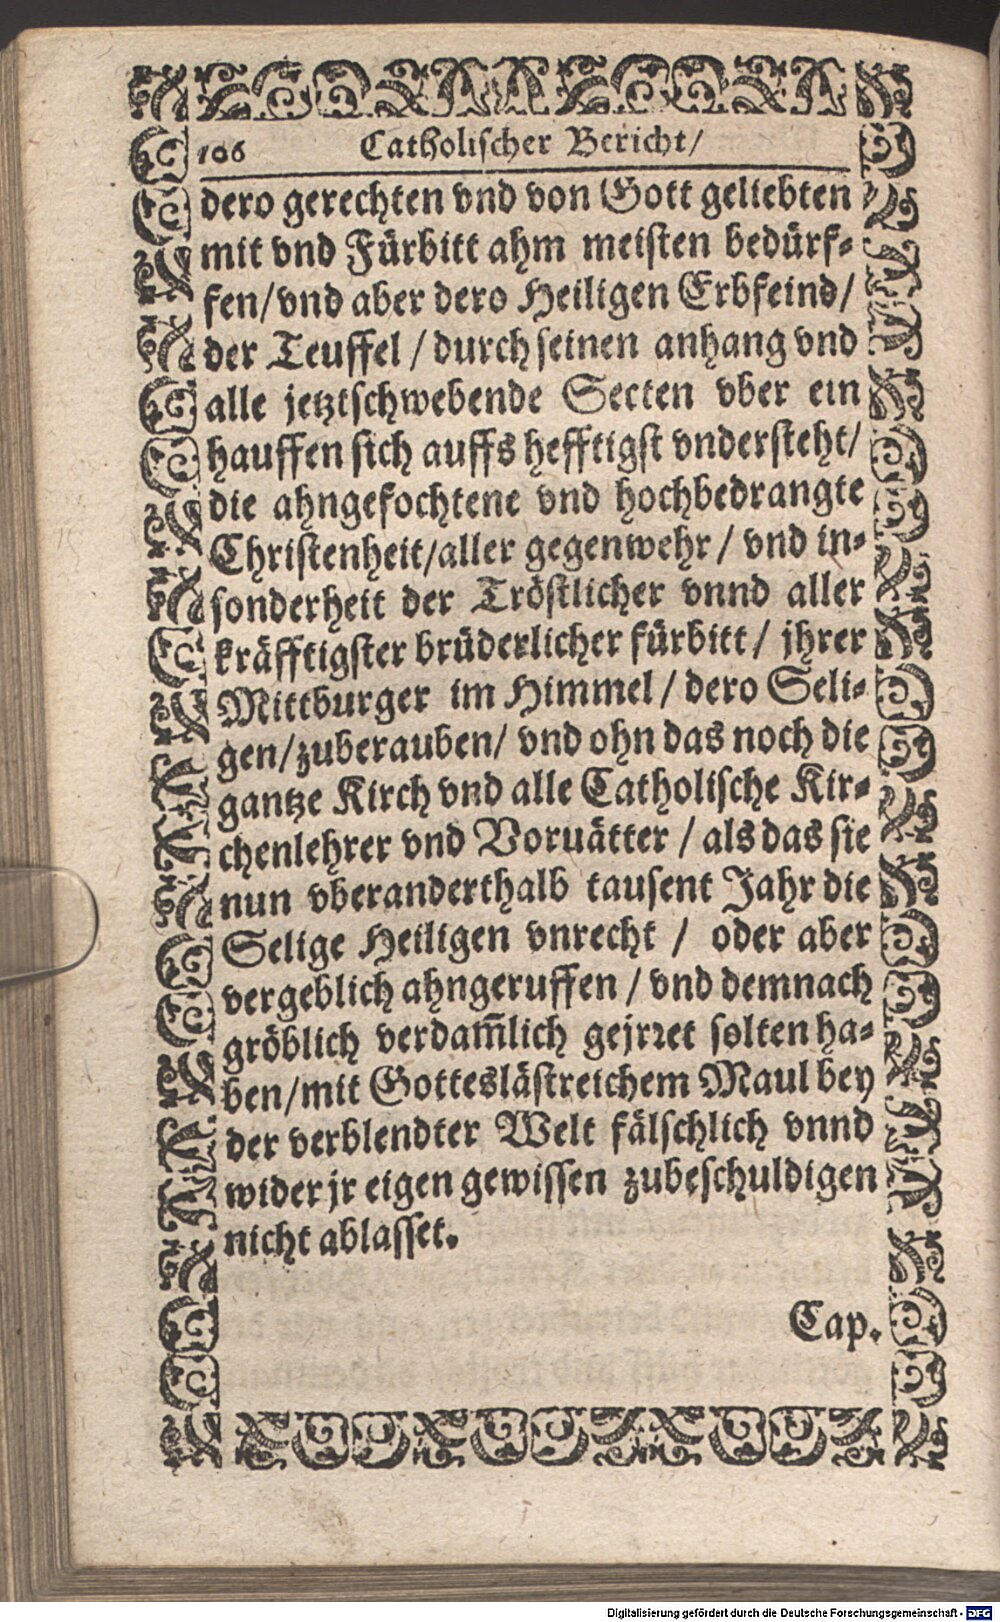 106 Catholischer Bericht/
dero gerechten vnd von Gott geliebten
mit vnd Fürbitt ahm meisten bedürf-
fen/vnd aber dero Heiligen Erbfeind/
der Teuffel / durch seinen anhang vnd
alle jetztschwebende Secten vber ein
hauffen sich auffs hefftigst vndersteht/
die ahngefochtene vnd hochbedrangte
Christenheit/aller gegenwehr / vnd in-
sonderheit der Tröstlicher vnnd aller
kräfftigster brüderlicher fürbitt / jhrer
Mittburger im Himmel / dero Seli-
gen/zuberauben/ vnd ohn das noch die
gantze Kirch vnd alle Catholische Kir-
chenlehrer vnd Voruätter / als das sie
nun vberanderthalb tausent Jahr die
Selige Heiligen vnrecht / oder aber
vergeblich ahngeruffen / vnd demnach
gröblich verdam̄lich gejrret solten ha-
ben/mit Gotteslästreichem Maul bey
der verblendter Welt fälschlich vnnd
wider jr eigen gewissen zubeschuldigen
nicht ablasset.
Cap.
Digitalisierung gefördert durch die Deutsche Forschungsgemeinschaft - DFG